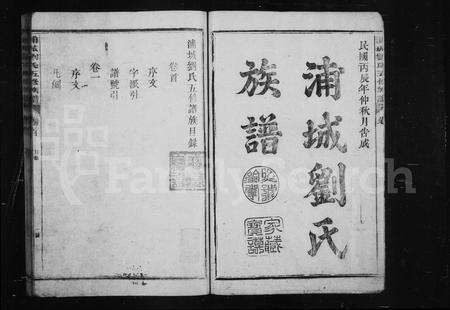 民國丙辰年仲秋月告成
浦城劉氏
族譜
家藏
寶譜
浦城劉氏五修譜族目錄
卷首
序文
字派引
譜號引
卷一
序文
凡例
FamilySearch